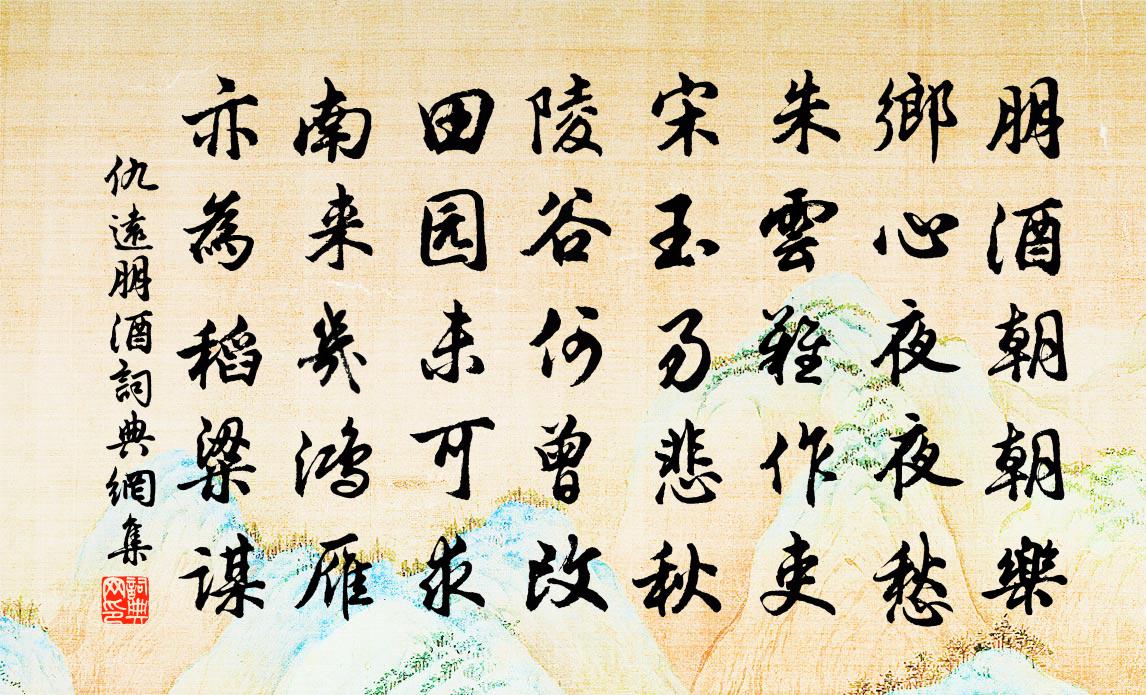 朋酒朝朝樂
鄉心夜夜愁
朱雲難作吏
宋玉易悲秋
陵谷何曾改
田园未可求
南来幾鸿雁
亦為稻粱謀
仇遠朋酒詞典網集
詞典网印